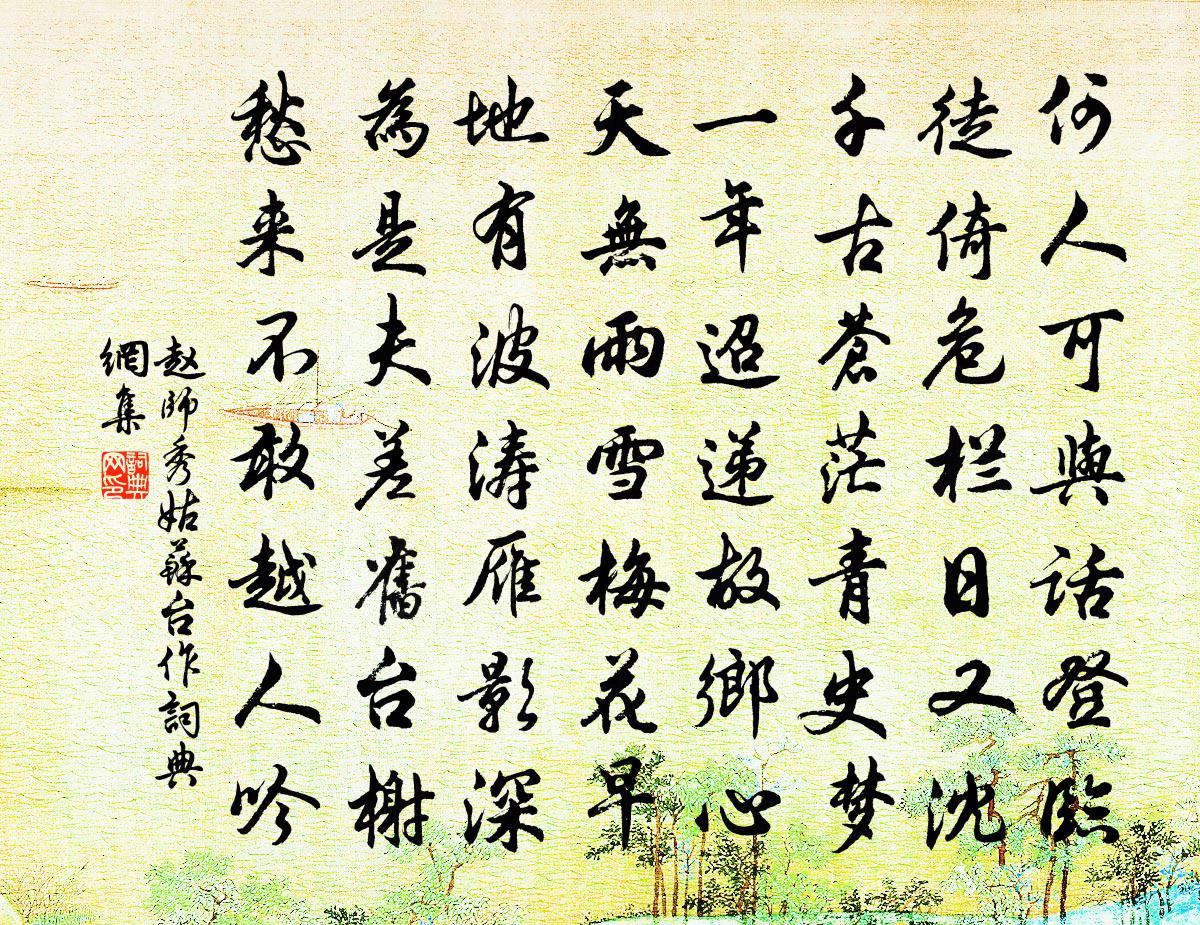 何人可與話登臨
徒倚危栏日又沈
千古蒼茫青史梦
一年迢递故鄉心
天無雨雪梅花早
地有波涛雁影深
為是夫差舊台榭
愁来不敢越人吟
赵師秀姑蘇台作詞典
網集
詞典
网